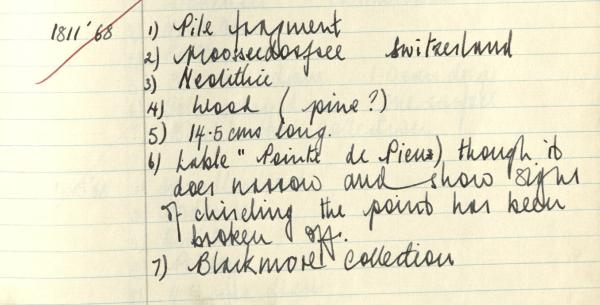 1811'68 1) Pile fragment
2) Moosseedorfsee Switzerland
3) Neolithic
4) Wood (pine?)
5) 14.5 cms long.
6) Lable "Pointe de Pieux) though it
does narrow and show signs
of chiseling the point has been
broken off.
7) Blackmore collection